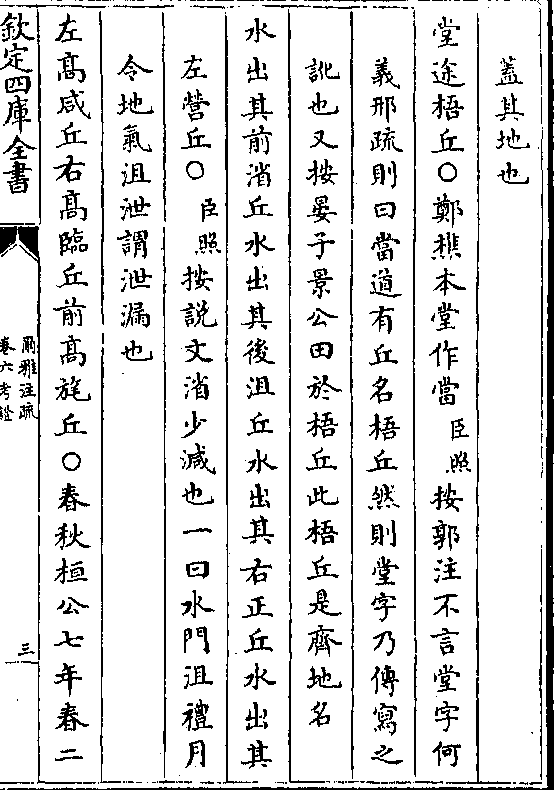 蓋其地也
堂途梧丘○鄭樵本堂作當臣照按郭注不言堂字何
義邢疏則曰當道有丘名梧丘然則堂字乃傳寫之
訛也又按晏子景公田於梧丘此梧丘是齊地名
水出其前渻丘水出其後沮丘水出其右正丘水出其
左營丘○臣照按説文渻少減也一曰水門沮禮月
令地氣沮泄謂泄漏也
左髙咸丘右髙臨丘前髙旄丘○春秋桓公七年春二
欽定四庫全書
爾雅注疏
卷六考證
三